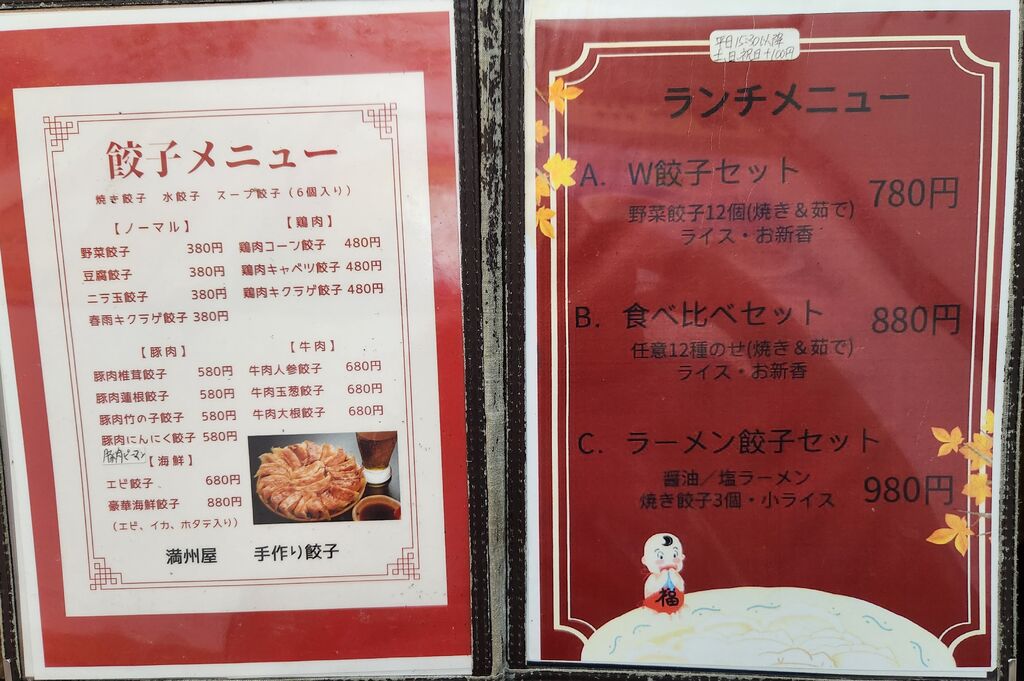 餃子メニュー
焼き餃子 水餃子 スープ餃子(6個入り)
【ノーマル】
野菜餃子 380円
豆腐餃子 380円
ニラ玉餃子 380円
春雨キクラゲ餃子 380円
【鶏肉】
鶏肉コーン餃子 480円
鶏肉キャベツ餃子 480円
鶏肉キクラゲ餃子 480円
【豚肉】
豚肉椎茸餃子 580円
豚肉蓮根餃子 580円
豚肉竹の子餃子 580円
豚肉にんにく餃子 580円
豚肉ピーマン
【牛肉】
牛肉人参餃子 680円
牛肉玉葱餃子 680円
牛肉大根餃子 680円
【海鮮】
エビ餃子 680円
豪華海鮮餃子 880円
(エビ、イカ、ホタテ入り)
満州屋 手作り餃子
平日15:30以降
土日祝日+100円
ランチメニュー
A. W餃子セット 780円
野菜餃子12個(焼き&茹で)
ライス・お新香
B. 食べ比べセット 880円
任意12種のせ(焼き&茹で)
ライス・お新香
C. ラーメン餃子セット 980円
醤油/塩ラーメン
焼き餃子3個・小ライス
福